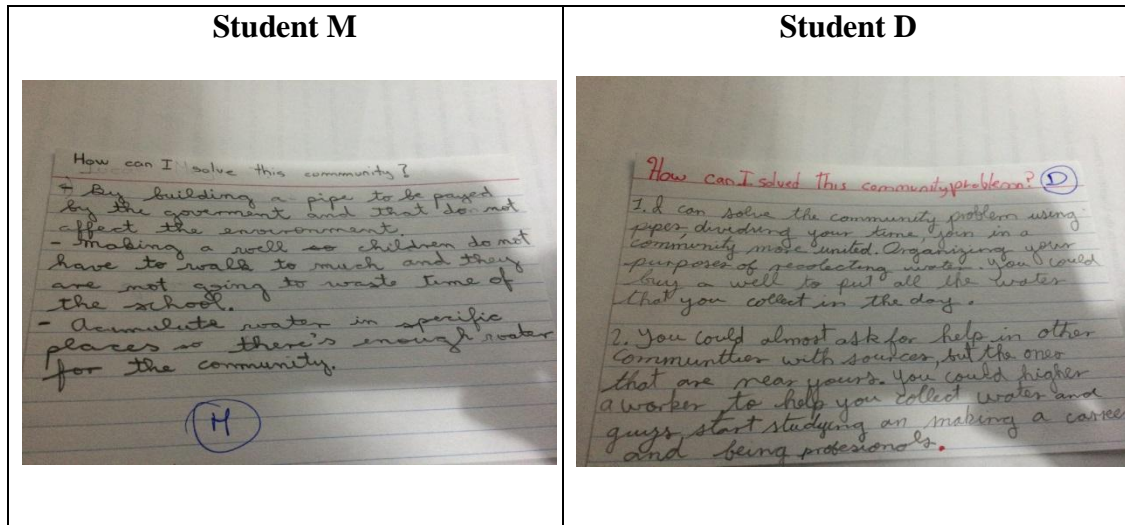 Student M
How can I solve this community?
+ By building a pipe to be payed
by the goverment and that do not
affect the environment.
- Making a well so children do not
have to walk to much and they
are not going to waste time of
the school.
- Acumulate water in specific
places so there's enough water
for the community.
M
Student D
How can I solved this community problem? D
1. I can solve the community problem using
pipes, dividing your time, join in a
community more united. Organizing your
purposes of recolecting water. You could
buy a well to put all the water
that you collect in the day.
2. You could almost ask for help in other
communities with sources, but the ones
that are near yours. You could higher
a worker to help you collect water and
guys, start studying an making a
and being profesionals.